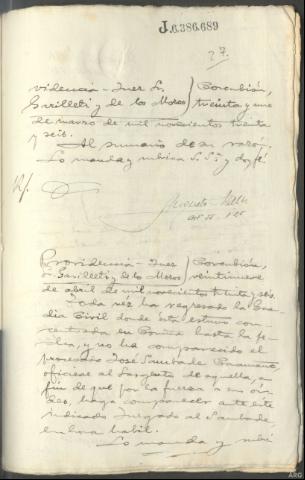 J.6.386.689
27
videncia - Juez Sr.
Garilleti y de los Mozos
Corcubión,
treinta y uno
de marzo de mil novecientos treinta
y seis.
Al sumario de su razón.
Lo manda y rubrica S. Sª; doy fé
Providencia - Juez
Sr Garilleti y de los Mozos
Corcubión,
veintinueve
de abril de mil novecientos treinta y seis.
Toda vez ha regresado la Guar
dia Civil donde esta estuvo con
centrada en Coruña hasta la fe
cha, y no ha comparecido el
procesado José Sambade
ofíciese al Sargento de aquella, a
fin de que por la fuerza a sus órde
nes, haga comparecer ante este
indicado Juzgado al Sambade,
en hora habil.
Lo manda y rubri
ARG